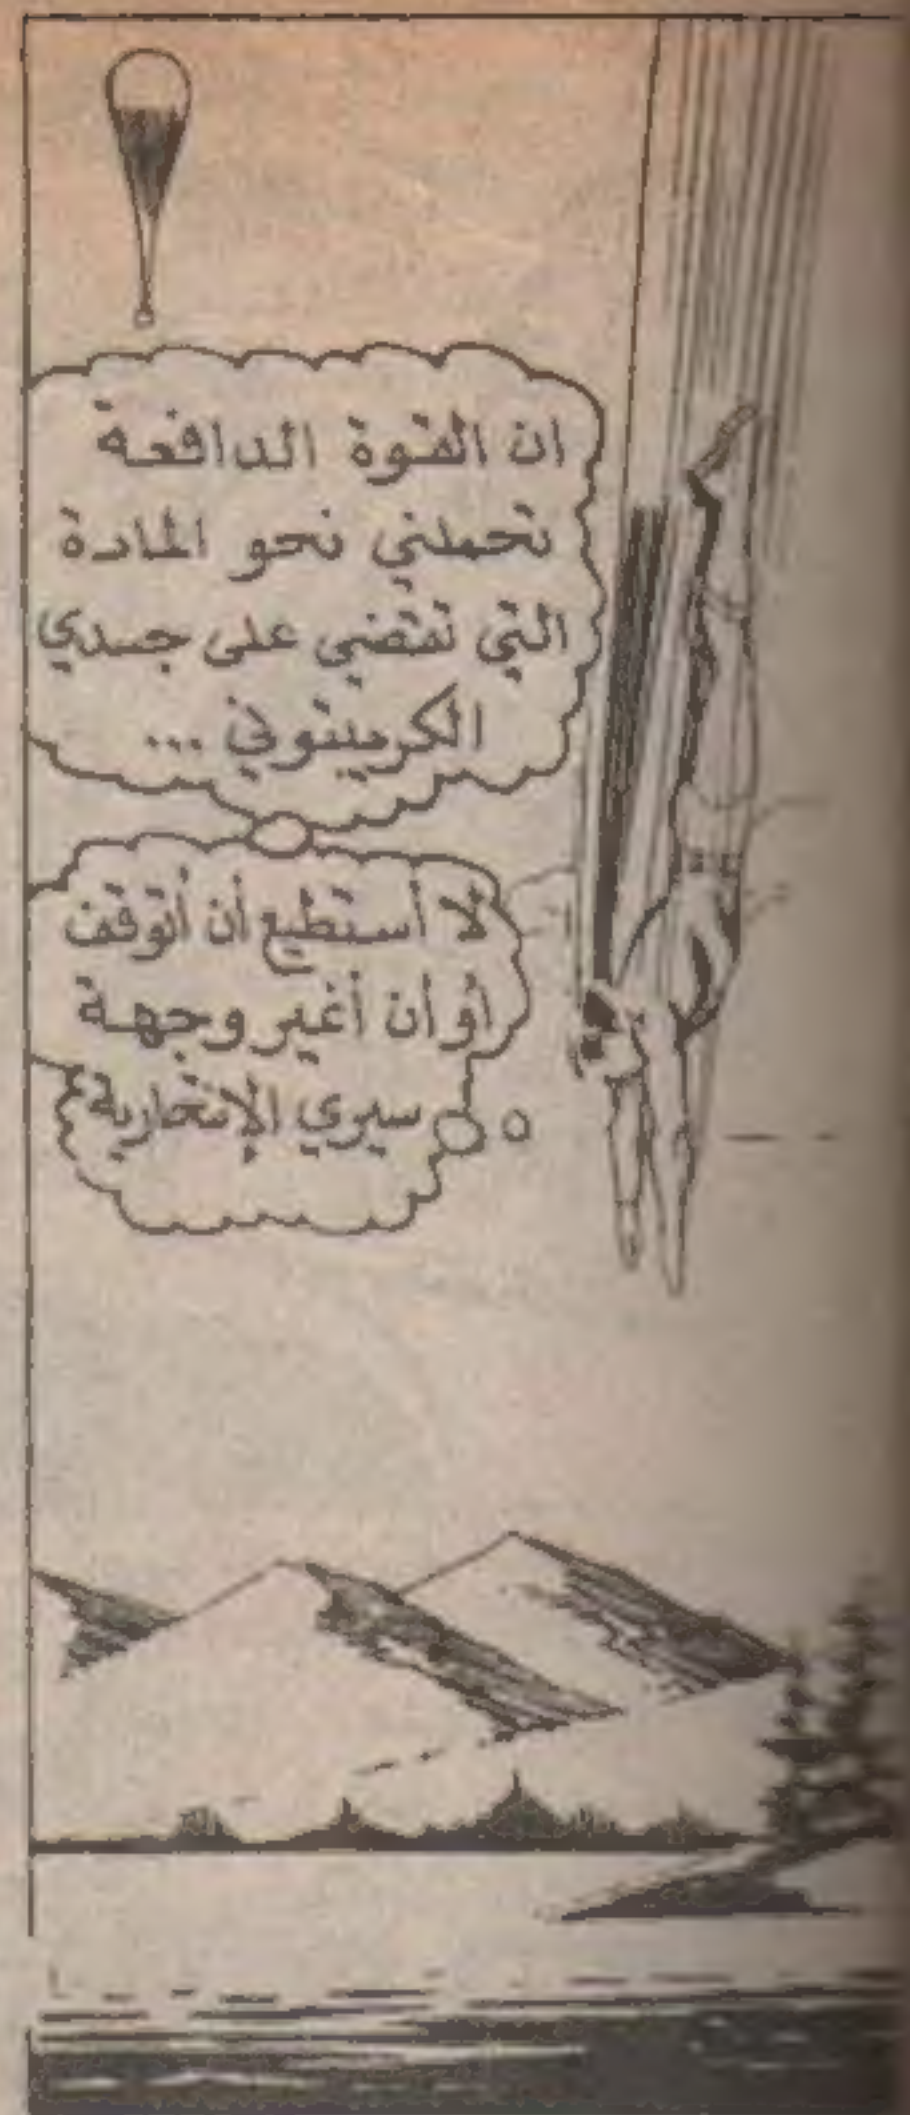 ان القوة الدافعة
تحملني نحو المادة
التي تقضي على جسدي
الكريبتوني ...
لا أستطيع أن أتوقف
أو أن أغير وجهة
سيري الإنتحارية